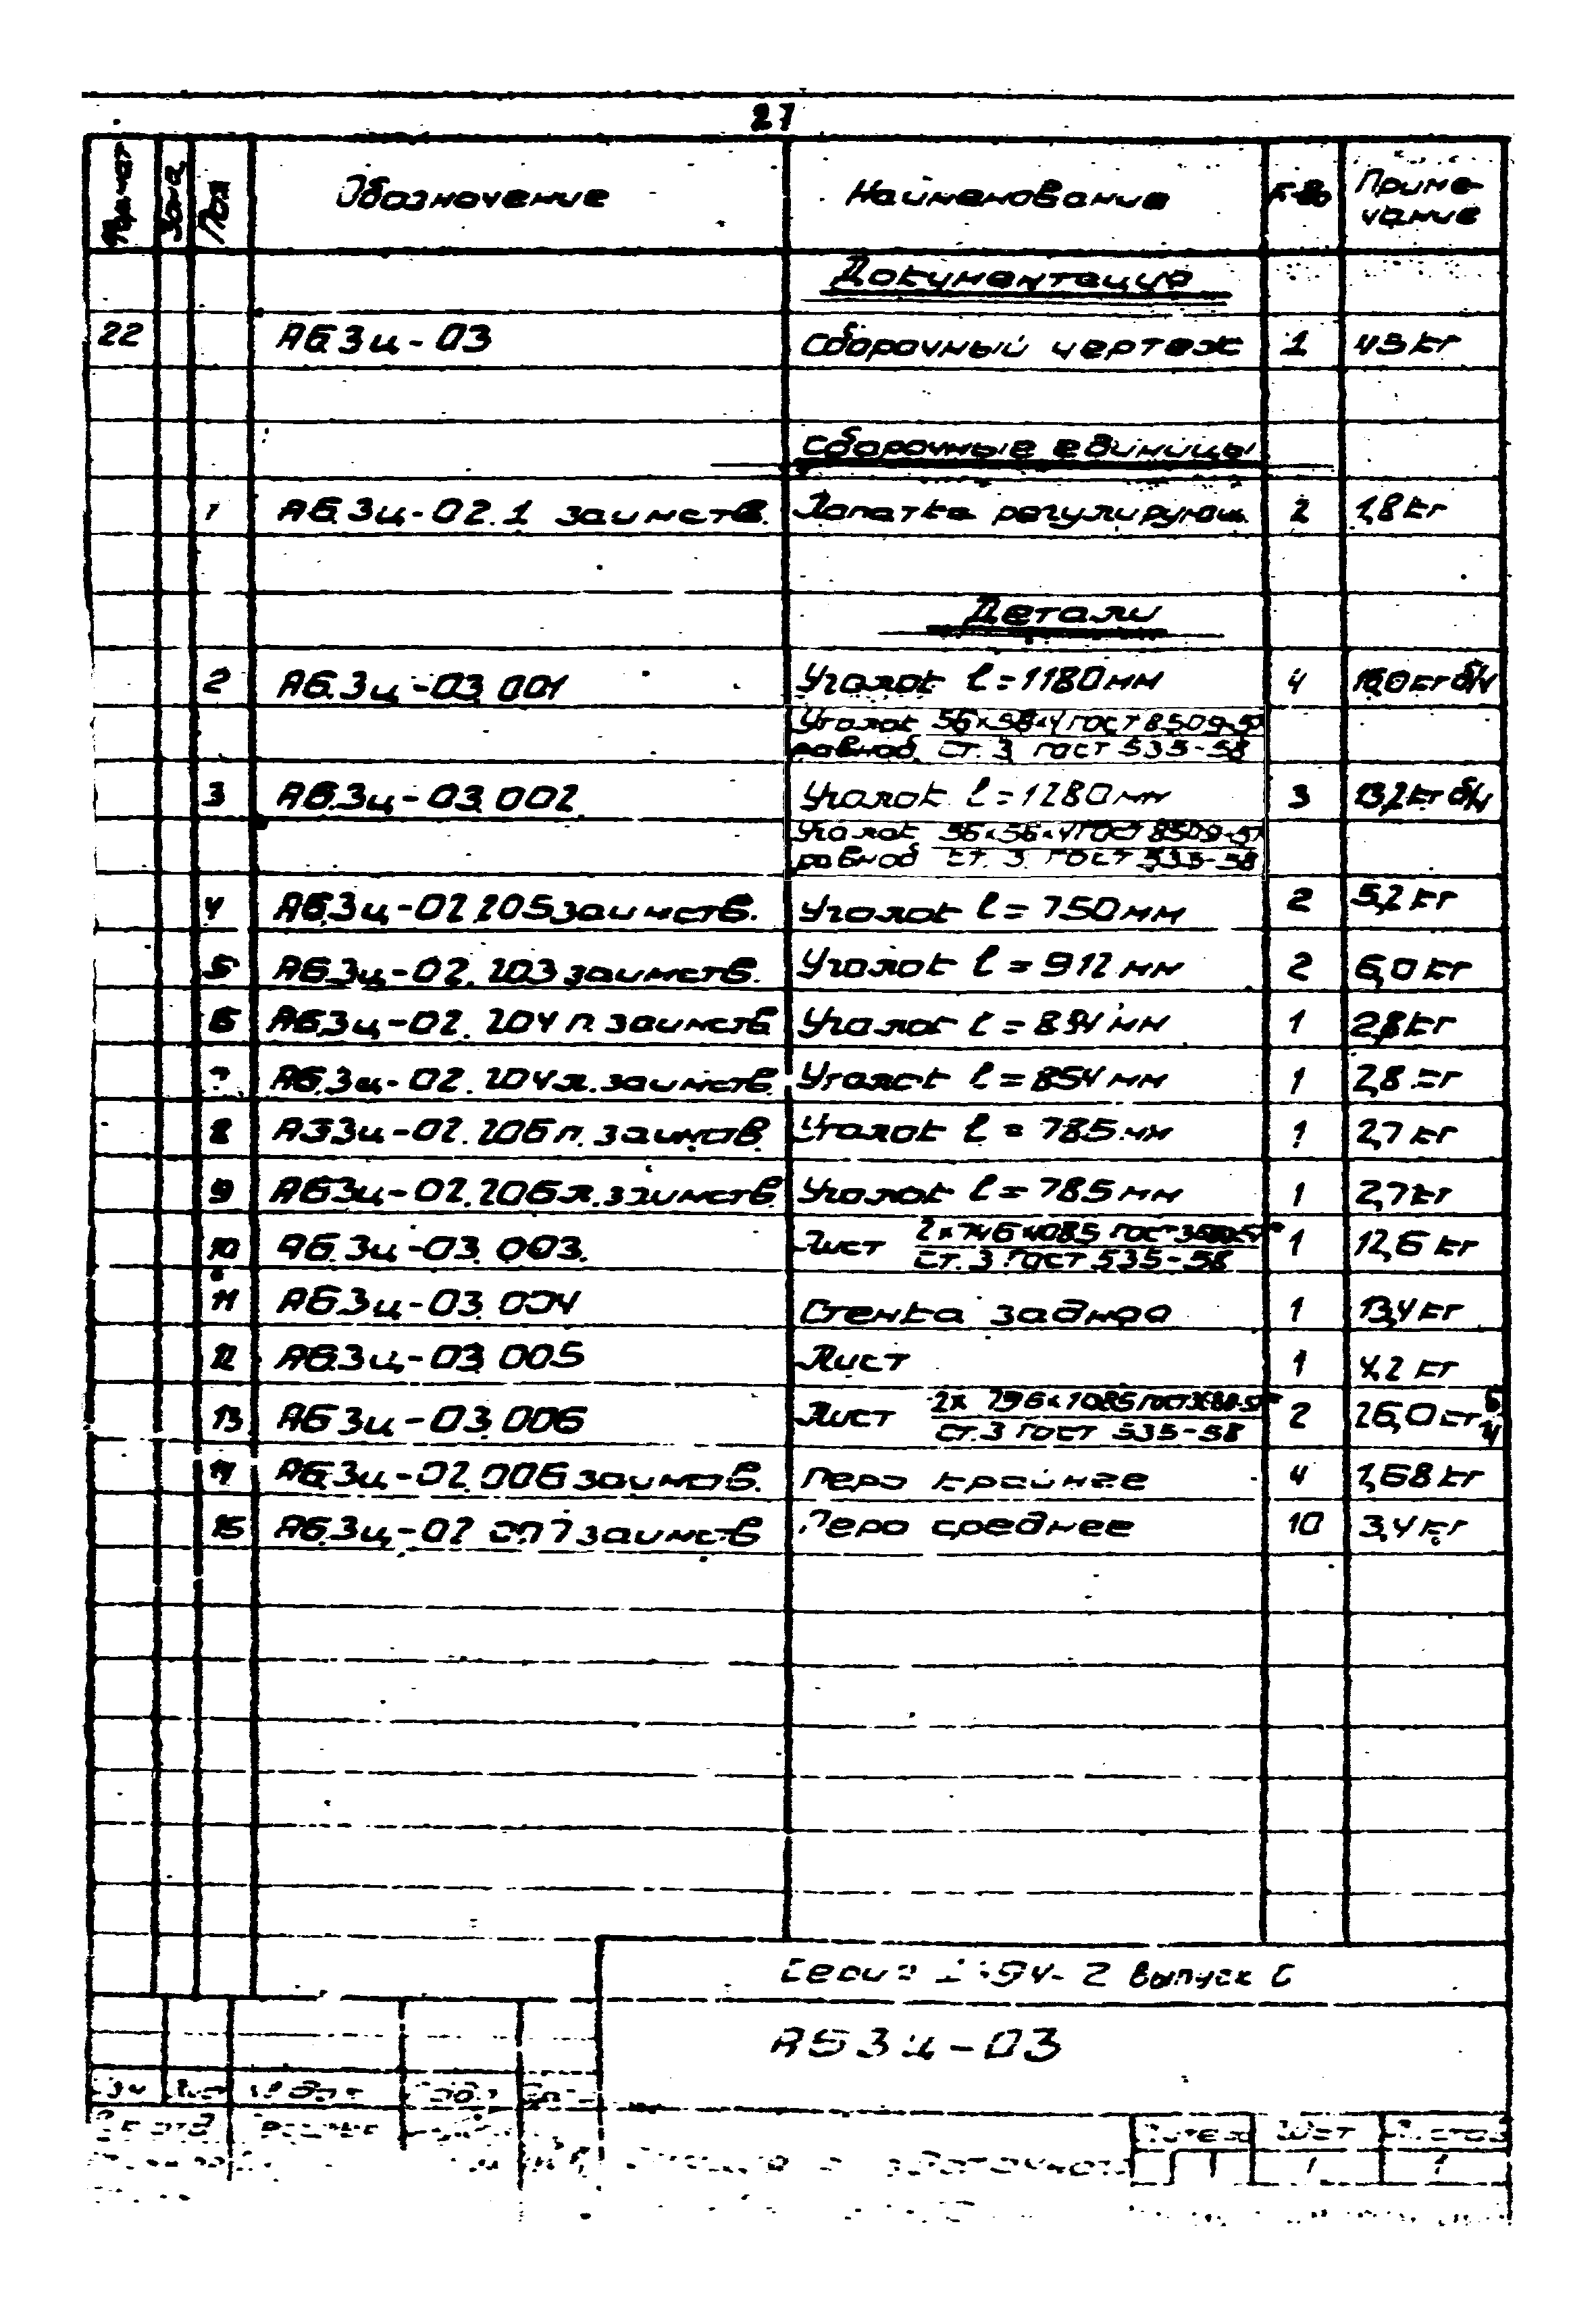 27
Формат Зона Поз Обозначение Наименование К-во Приме-
чание
Документация
22 АБ.3ц-03 Сборочный чертеж 1 43 кг
Сборочные единицы
1 АБ.3ц-02.1 заимств. Лопатка регулирующ. 2 1,8 кг
Детали
2 АБ.3ц-03.001 Уголок l=1180мм 4 16,0 кг б/ч
Уголок 56×56×4 ГОСТ 8509-57
равноб. Ст. 3 ГОСТ 535-58
3 АБ.3ц-03.002 Уголок l=1280мм 3 13,2 кг б/ч
Уголок 56×56×4 ГОСТ 8509-57
равноб Ст. 3 ГОСТ 535-58
4 АБ.3ц-02.205 заимств. Уголок l=750мм 2 5,2 кг
5 АБ.3ц-02.203 заимств. Уголок l=912 мм 2 6,0 кг
6 АБ.3ц-02.204 п. заимств Уголок l=854 мм 1 2,8 кг
7 АБ.3ц-02.204л. заимств Уголок l=854 мм 1 2,8 кг
8 АБ3ц-02.206 п. заимств Уголок l=785 мм 1 2,7 кг
9 АБ3ц-02.206л. заимств Уголок l=785 мм 1 2,7 кг
10 АБ.3ц-03.003. Лист ГОСТ 1 12,6 кг
Ст.3 ГОСТ 535-58
11 АБ.3ц-03.004 Стенка задняя 1 13,4 кг
12 АБ.3ц-03.005 Лист 1 4,2 кг
13 АБ3ц-03.006 Лист 2× 796×1085 ГОСТ 2 26,0 кг б/ч
Ст.3 ГОСТ 535-58
14 АБ.3ц-02.006 заимств. Перо крайнее 4 1,68 кг
15 АБ.3ц-02.007 заимств Перо среднее 10 3,4 кг
Серия выпуск
АБ3ц-03
Лист
Литера Лист Листов
1 1